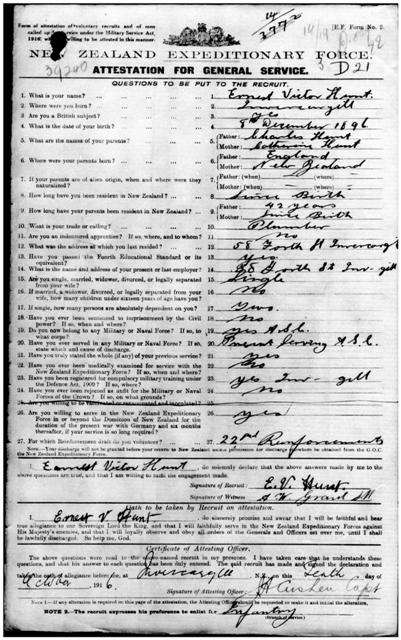 Form of attestation of voluntary recruits and of men
called up for service under the Military Service Act,
1916, willing to be attested in this manner.
[E.F. Form No. 2.
14/
3772
39240
D 21
NEW ZEALAND EXPEDITIONARY FORCE.
ATTESTATION FOR GENERAL SERVICE.
QUESTIONS TO BE PUT TO THE RECRUIT.
1. What is your name? 1. Ernest Victor Hunt.
2. Where were you born? 2. Invercargill
3. Are you a British subject? 3. Yes
4. What is the date of your birth? 4. 8th December 1896.
5. What are the names of your parents? Father: Charles Hunt
Mother: Catherine Hunt
6. Where were your parents born? Father: England
Mother: New Zealand
7. If your parents are of alien origin, when and where were they naturalized? Father: (when) — (where) —
Mother: (when) — (where) —
8. How long have you been resident in New Zealand? 8. Since Birth
9. How long have your parents been resident in New Zealand? Father: 42 years
Mother: Since Birth
10. What is your trade or calling? 10. Plumber
11. Are you an indentured apprentice? If so, where, and to whom? 11. No
12. What was the address at which you last resided? 12. 58 Forth St Invercargill
13. Have you passed the Fourth Educational Standard or its equivalent? 13. Yes
14. What is the name and address of your present or last employer? 14. Forth St Inv-gill
15. Are you single, married, widower, divorced, or legally separated from your wife? 15. Single
16. If married, a widower, divorced, or legally separated from your wife, how many children under sixteen years of age have you? 16. No
17. If single, how many persons are absolutely dependent on you? 17.
18. Have you ever been sentenced to imprisonment by the Civil power? If so, when and where? 18. No
19. Do you now belong to any Military or Naval Force? If so, to what corps? 19. Yes A.S.C.
20. Have you ever served in any Military or Naval Force? If so, state which and cause of discharge. 20. Present Serving A.S.C.
21. Have you truly stated the whole (if any) of your previous service? 21. Yes
22. Have you ever been medically examined for service with the New Zealand Expeditionary Force? If so, when and where? 22. No
23. Have you been registered for compulsory military training under the Defence Act, 1909? If so, where? 23. Yes Inv-gill
24. Have you ever been rejected as unfit for the Military or Naval Forces of the Crown? If so, on what grounds? 24. No
25. Are you willing to be vaccinated or revaccinated and inoculated? 25.
26. Are you willing to serve in the New Zealand Expeditionary Force in or beyond the Dominion of New Zealand for the duration of the present war with Germany and six months thereafter, if your service is so long required? 26. Yes
27. For which Reinforcement draft do you volunteer? 27. 22nd Reinforcements
I, Earnest Victor Hunt, do solemnly declare that the above answers made by me to the
above questions are true, and that I am willing to fulfil the engagement made.
Signature of Recruit: E. V. Hunt
Signature of Witness
Oath to be taken by Recruit on attestation.
I, Ernest V Hunt, do sincerely promise and swear that I will be faithful and bear
true allegiance to our Sovereign Lord the King, and that I will faithfully serve in the New Zealand Expeditionary Forces against
His Majesty's enemies, and that I will loyally observe and obey all orders of the Generals and Officers set over me, until I shall
be lawfully discharged. So help me, God.
Certificate of Attesting Officer.
The above questions were read to the above-named recruit in my presence. I have taken care that he understands these
questions, and that his answer to each question has been duly entered. The said recruit has made and signed the declaration and
taken the oath of allegiance before me, at Invercargill N.Z., on this Tenth day of
October 1916.
Signature of Attesting Officer: Capt
NOTE 2.—The recruit expresses his preference to enlist for Infantry